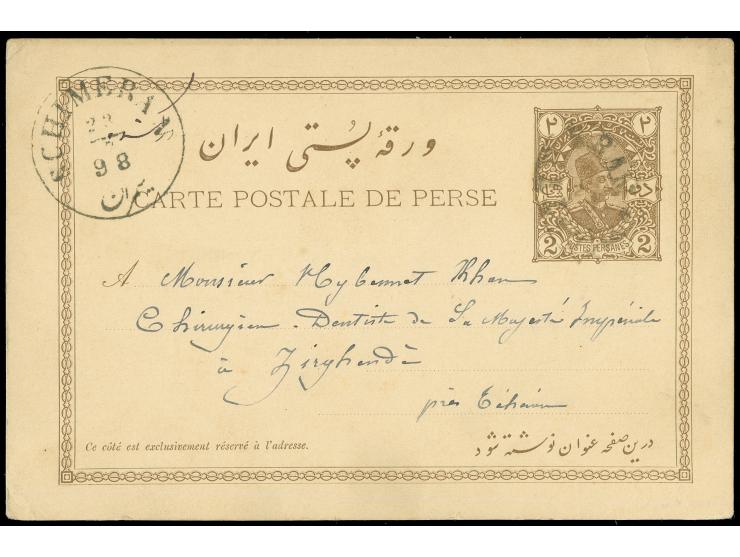 SCHIMERAN
98
ورقهٔ پُستی ایران
CARTE POSTALE DE PERSE
۲ ۲
2 POSTES PERSANES 2
A Monsieur Hybennet Khan
Chirurgien-Dentiste de Sa Majesté Impériale
à Zirghendè
près Téhéran
Ce côté est exclusivement réservé à l'adresse.
درین صفحه عنوان نوشته شود